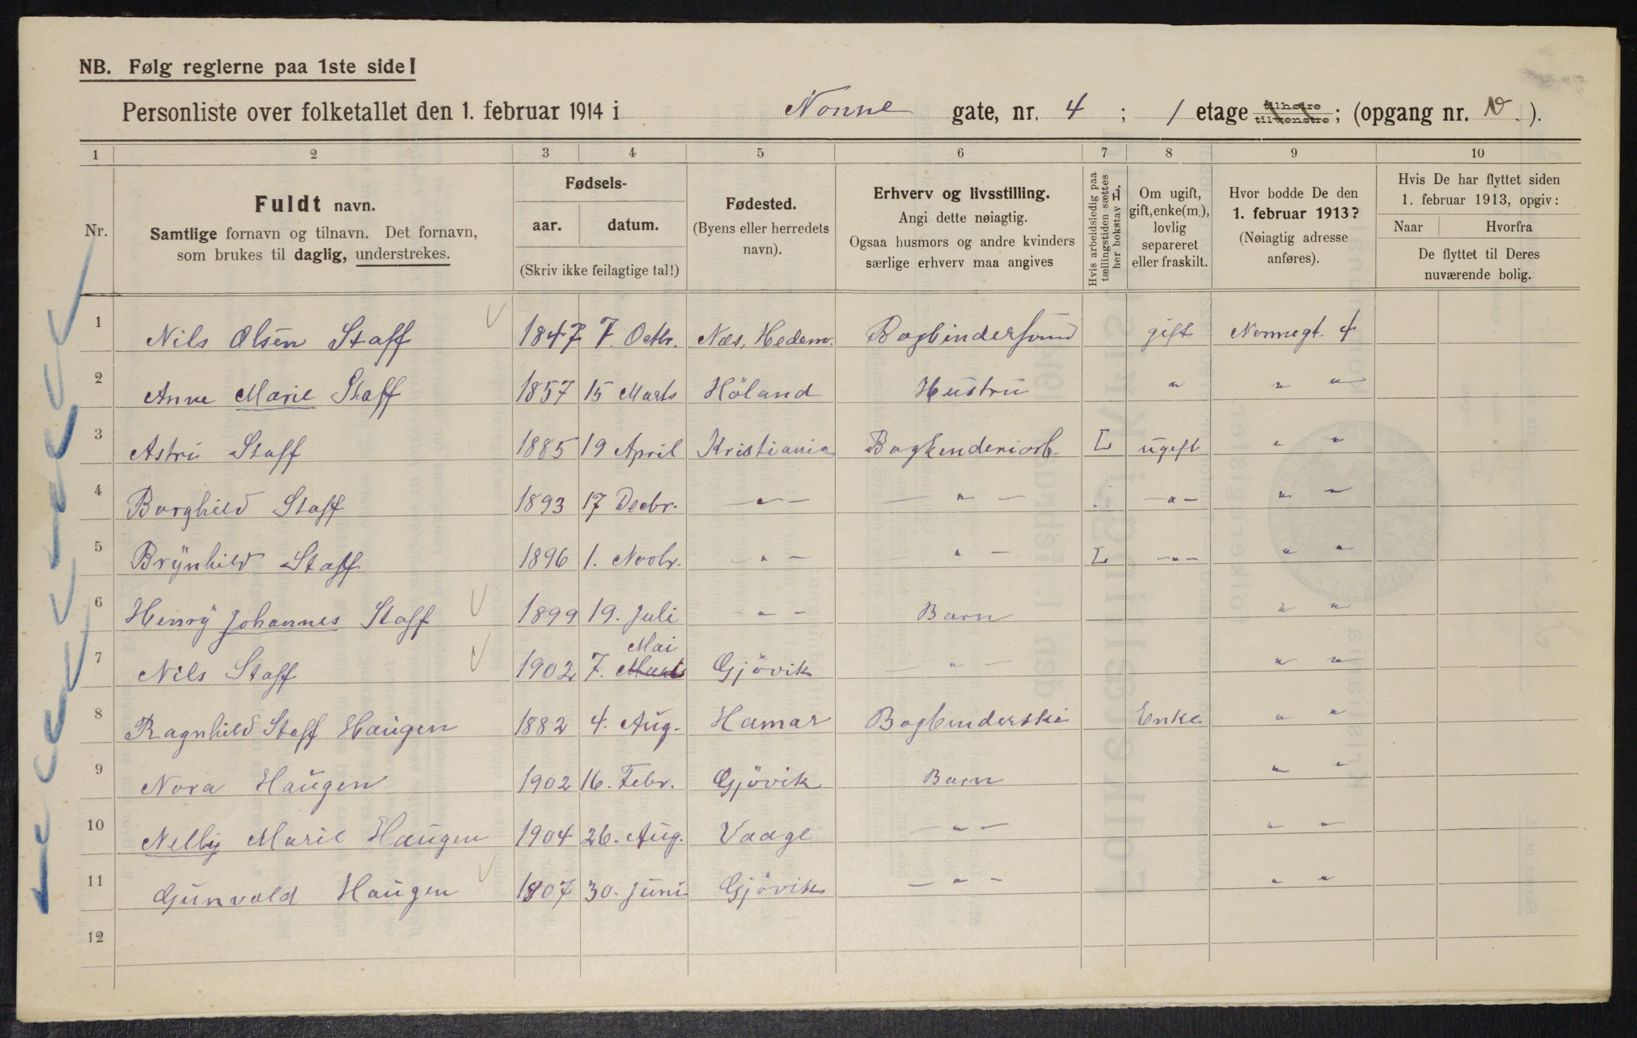 NB. Følg reglerne paa 1ste side!
Personliste over folketallet den 1. februar 1914 i Nonne gate, nr. 4 ; 1 etage tilhøire tilvenstre ; (opgang nr. V. ).
1 2 3 4 5 6 7 8 9 10
Nr.
Fuldt navn.
Samtlige fornavn og tilnavn. Det fornavn,
som brukes til daglig, understrekes.
Fødsels-
aar. datum.
(Skriv ikke feilagtige tal!)
Fødested.
(Byens eller herredets
navn).
Erhverv og livsstilling.
Angi dette nøiagtig.
Ogsaa husmors og andre kvinders
særlige erhverv maa angives
Hvis arbeidsledig paa
tællingstiden sættes
her bokstav L.
Om ugift,
gift, enke(m.),
lovlig
separeret
eller fraskilt.
Hvor bodde De den
1. februar 1913?
(Nøiagtig adresse
anføres).
Hvis De har flyttet siden
1. februar 1913, opgiv:
Naar Hvorfra
De flyttet til Deres
nuværende bolig.
1 Nils Olsen Staff 1847 7. Octbr. Næs, Hedem. Bogbindersvend gift Nonnegt. 4
2 Anne Marie Staff 1857 15 Marts Höland Hustru " " "
3 Astri Staff 1885 19 April Kristiania Bogbinderiarb. L ugift " "
4 Borghild Staff 1893 17 Decbr. — " — — " — — " — " "
5 Brynhild Staff 1896 1. Novbr. — " — — " — L — " — " "
6 Henry Johannes Staff 1899 19. Juli — " — Barn " "
7 Nils Staff 1902 7. Marts Mai Gjövik — " — " "
8 Ragnhild Staff Haugen 1882 4. Aug. Hamar Bogbinderske Enke " "
9 Nora Haugen 1902 16. Febr. Gjövik Barn " "
10 Nelly Marie Haugen 1904 26. Aug. Vaage — " — " "
11 Gunvald Haugen 1907 30. Juni Gjövik — " — " "
12